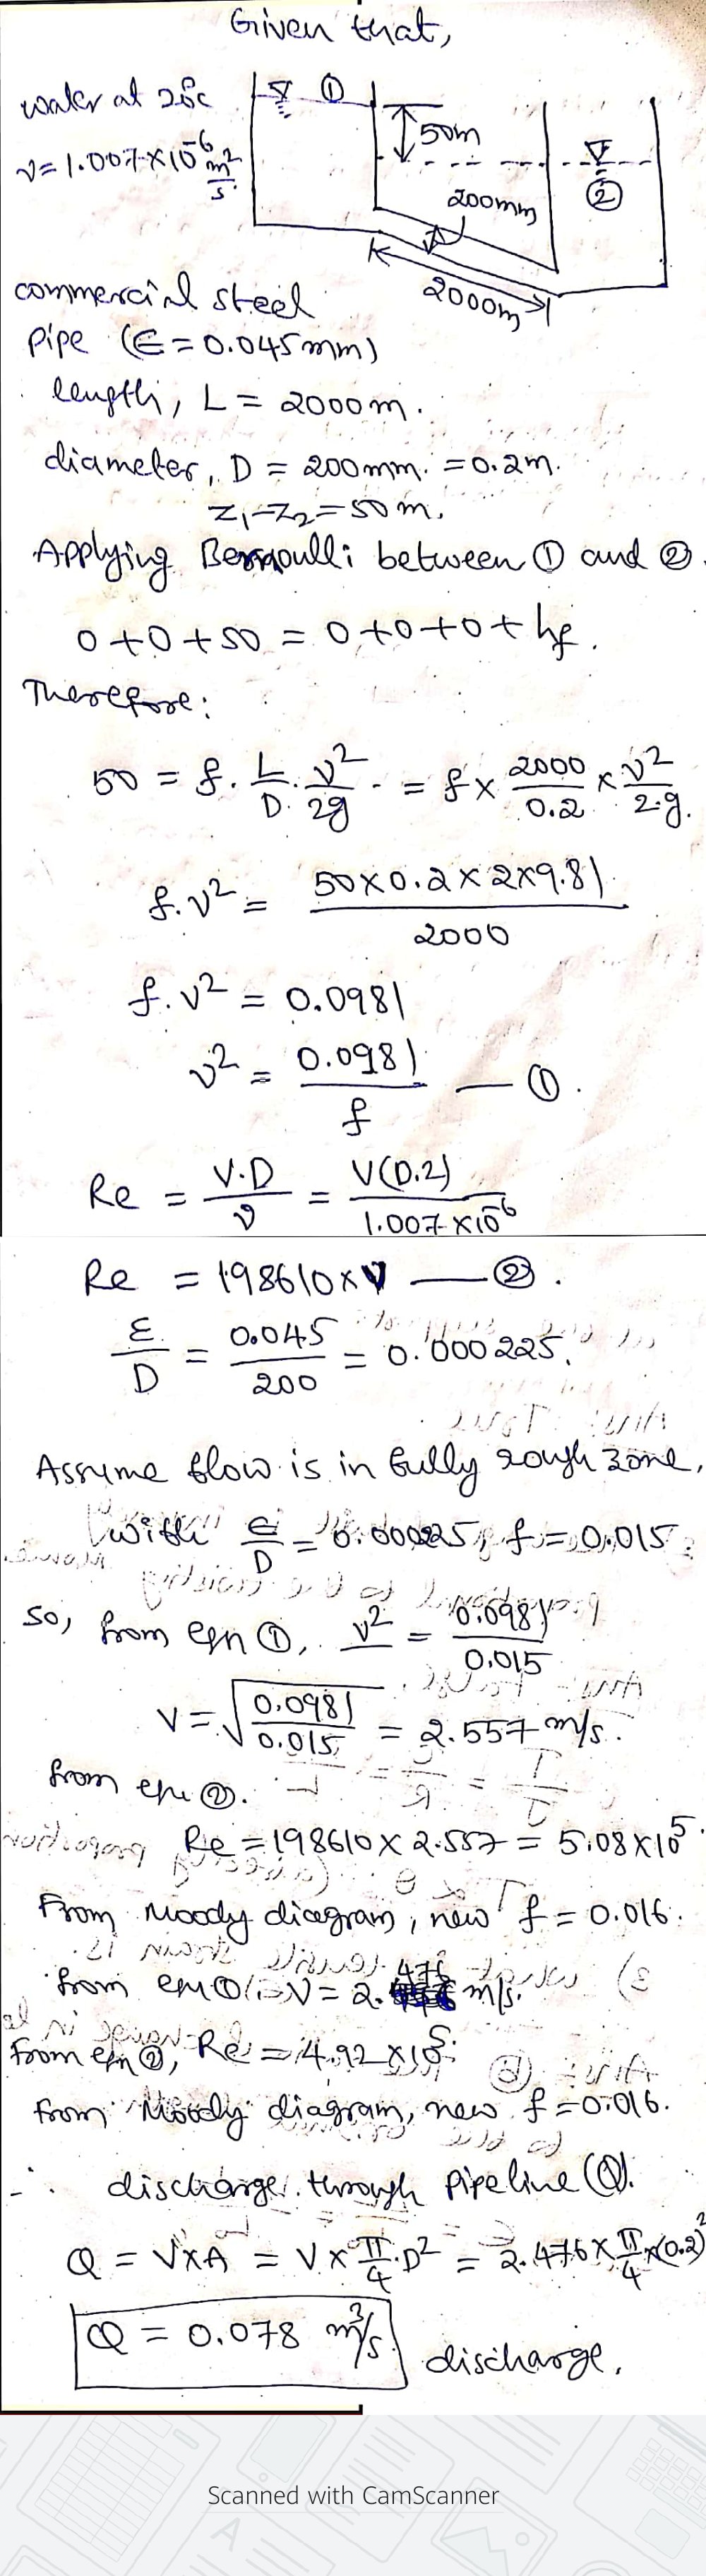 Given that,
water at 20°c
ν = 1.007×10⁻⁶ m²/s
①
50m
②
200mm
2000m
commercial steel
pipe (ϵ = 0.045mm)
length, L = 2000m.
diameter, D = 200mm. = 0.2m.
z₁-z₂ = 50m.
Applying Bernoulli between ① and ②.
0 + 0 + 50 = 0 + 0 + 0 + hf.
Therefore:
50 = f. L/D. v²/2g. = f × 2000/0.2 × v²/2.g.
f.v² = 50×0.2×2×9.81/2000
f.v² = 0.0981
v² = 0.0981/f — ①.
Re = V.D/ν = V(0.2)/1.007×10⁻⁶
Re = 198610×V — ②.
ε/D = 0.045/200 = 0.000225.
Assume flow is in fully rough zone,
with ϵ/D = 0.000225, f = 0.015
so, from eqn ①, v² = 0.0981/0.015
V = √0.0981/0.015 = 2.557 m/s.
from eqn ②.
Re = 198610 × 2.557 = 5.08×10⁵.
From Moody diagram, new f = 0.016.
from eqn ① V = 2.476 m/s.
from eqn ②, Re = 4.92×10⁵.
from Moody diagram, new f = 0.016.
∴ discharge through pipeline (Q).
Q = V×A = V×π/4.D² = 2.476×π/4×(0.2)²
Q = 0.078 m³/s. discharge.
Scanned with CamScanner